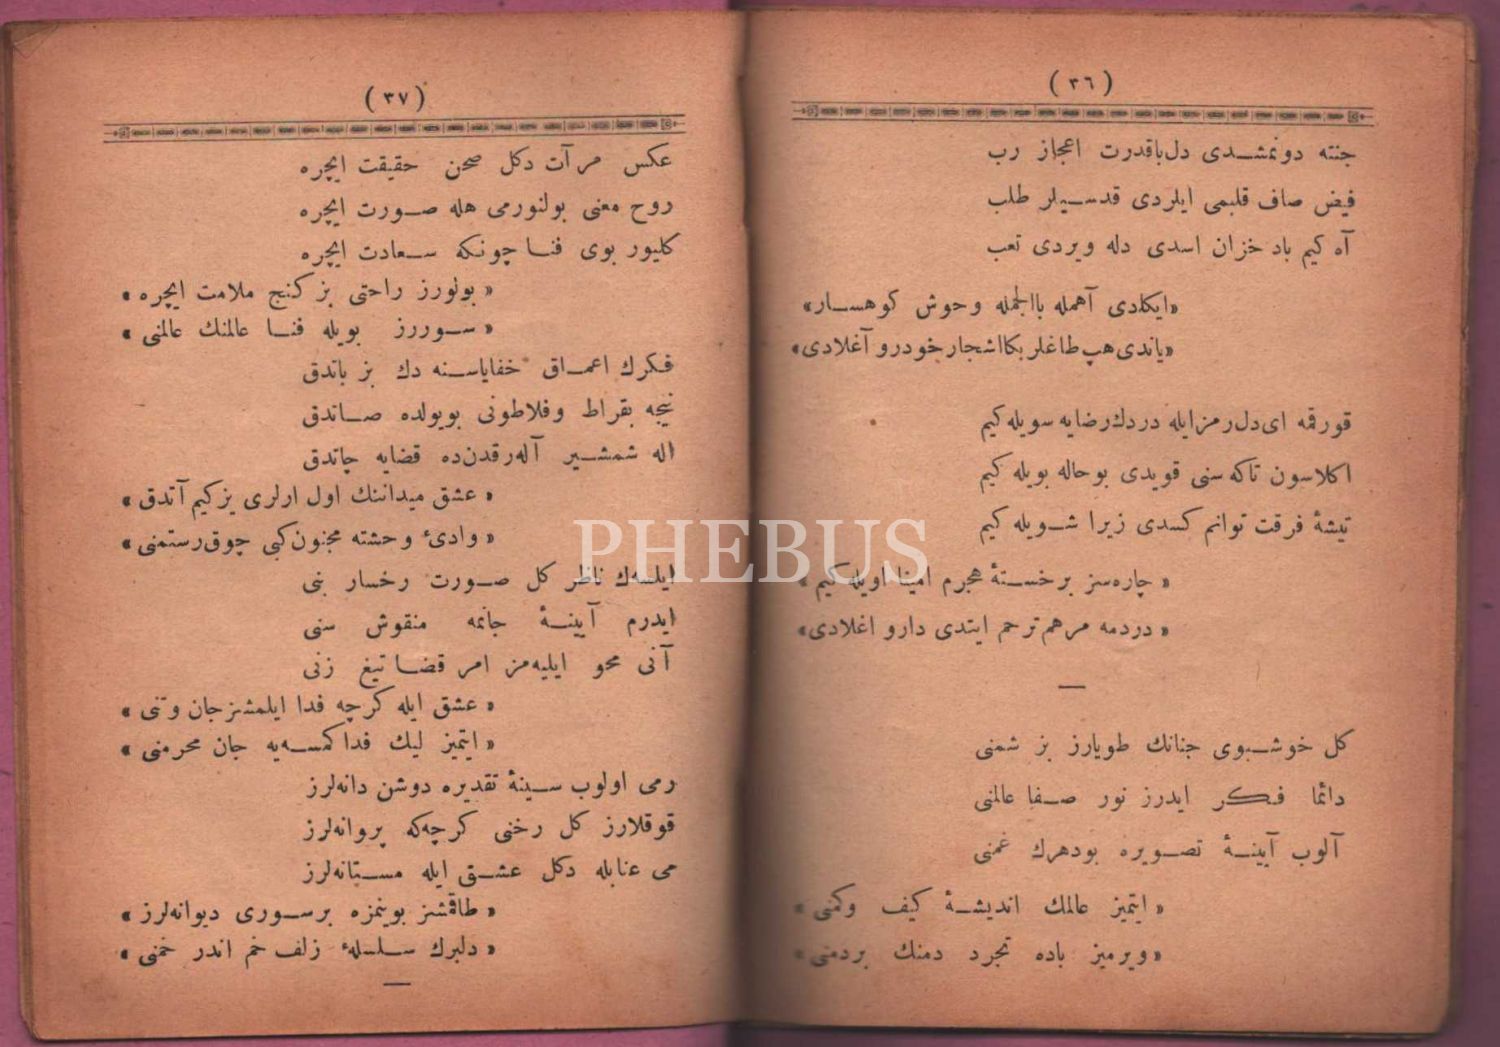 ( ٣٦ )
جنته دونمشدی دل‌باقدرت اعجاز رب
فیض صاف قلبمی ایلردی قدسیلر طلب
آه کیم باد خزان اسدی دله ویردی تعب
«ایکلدی آهمله باالجمله وحوش کوهسار»
«یاندی هپ طاغلر بکا اشجار خودرو آغلادی»
قورقمه ای دل رمز ایله دردك رضایه سویله کیم
اکلاسون تاکه سنی قویدی بو حاله بویله کیم
تیشهٔ فرقت توانم کسدی زیرا شویله کیم
« چاره‌سز بر خستهٔ هجرم امینا اویله کیم »
« دردمه مرهم ترحم ایتدی دارو اغلادی »
—
کل خوشبوی جنانك طویارز بز شمنی
دائما فکر ایدرز نور صفا عالمنی
آلوب آیینهٔ تصویره بودهرك غمنی
« ایتمیز عالمك اندیشهٔ کیف وکمنی »
« ویرمیز باده تجرد دمنك بردمنی »
( ٣٧ )
عکس مرآت دکل صحن حقیقت ایچره
روح معنی بولنورمی هله صورت ایچره
کلیور بوی فنا چونکه سعادت ایچره
« بولورز راحتی بز کنج ملامت ایچره »
« سوررز بویله فنا عالمنك عالمنی »
فکرك اعماق خفایاسنه دك بز باتدق
نیجه بقراط وفلاطونی بویولده صاتدق
اله شمشیر آله‌رقدن‌ده قضایه چاتدق
« عشق میداننك اول ارلری یز کیم آتدق »
« وادیٔ وحشته مجنون کبی چوق رستمنی »
ایلسه‌ك ناظر کل صورت رخسار بنی
ایدرم آیینهٔ جانمه منقوش سنی
آنی محو ایلیه‌مز امر قضا تیغ زنی
« عشق ایله کرچه فدا ایلمشز جان وتنی »
« ایتمیز لیك فدا کمسه‌یه جان محرمنی »
رمی اولوب سینهٔ تقدیره دوشن دانه‌لرز
قوقلارز کل رخنی کرچه‌که پروانه‌لرز
می عنابله دکل عشق ایله مستانه‌لرز
« طاقمشز بوینمزه برسوری دیوانه‌لرز »
« دلبرك سلسلهٔ زلف خم اندر خمنی »
—
PHEBUS